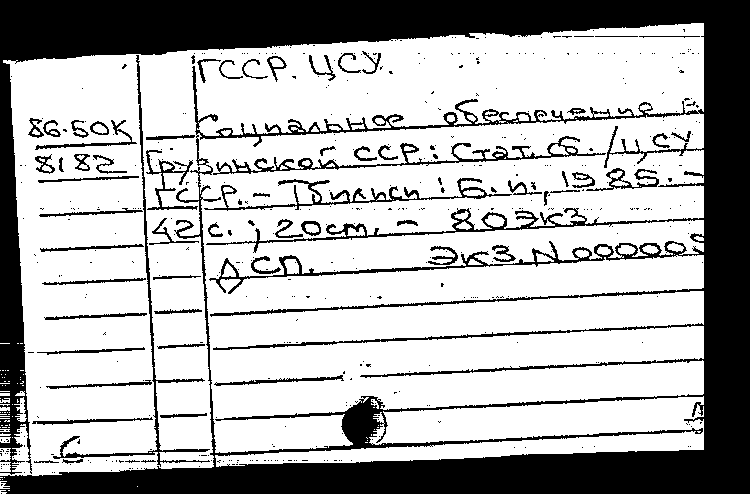 ГССР. ЦСУ.
86-60К Социальное обеспечение в
8182 Грузинской ССР.: Стат. сб. / ЦСУ
ГССР. – Тбилиси : Б. и., 1985. –
42 с. ; 20 cm. – 80 экз.
ДСП. Экз. N 000005